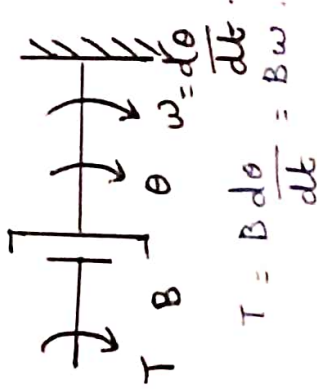 T B θ ω = dθ/dt
T = B dθ/dt = Bω